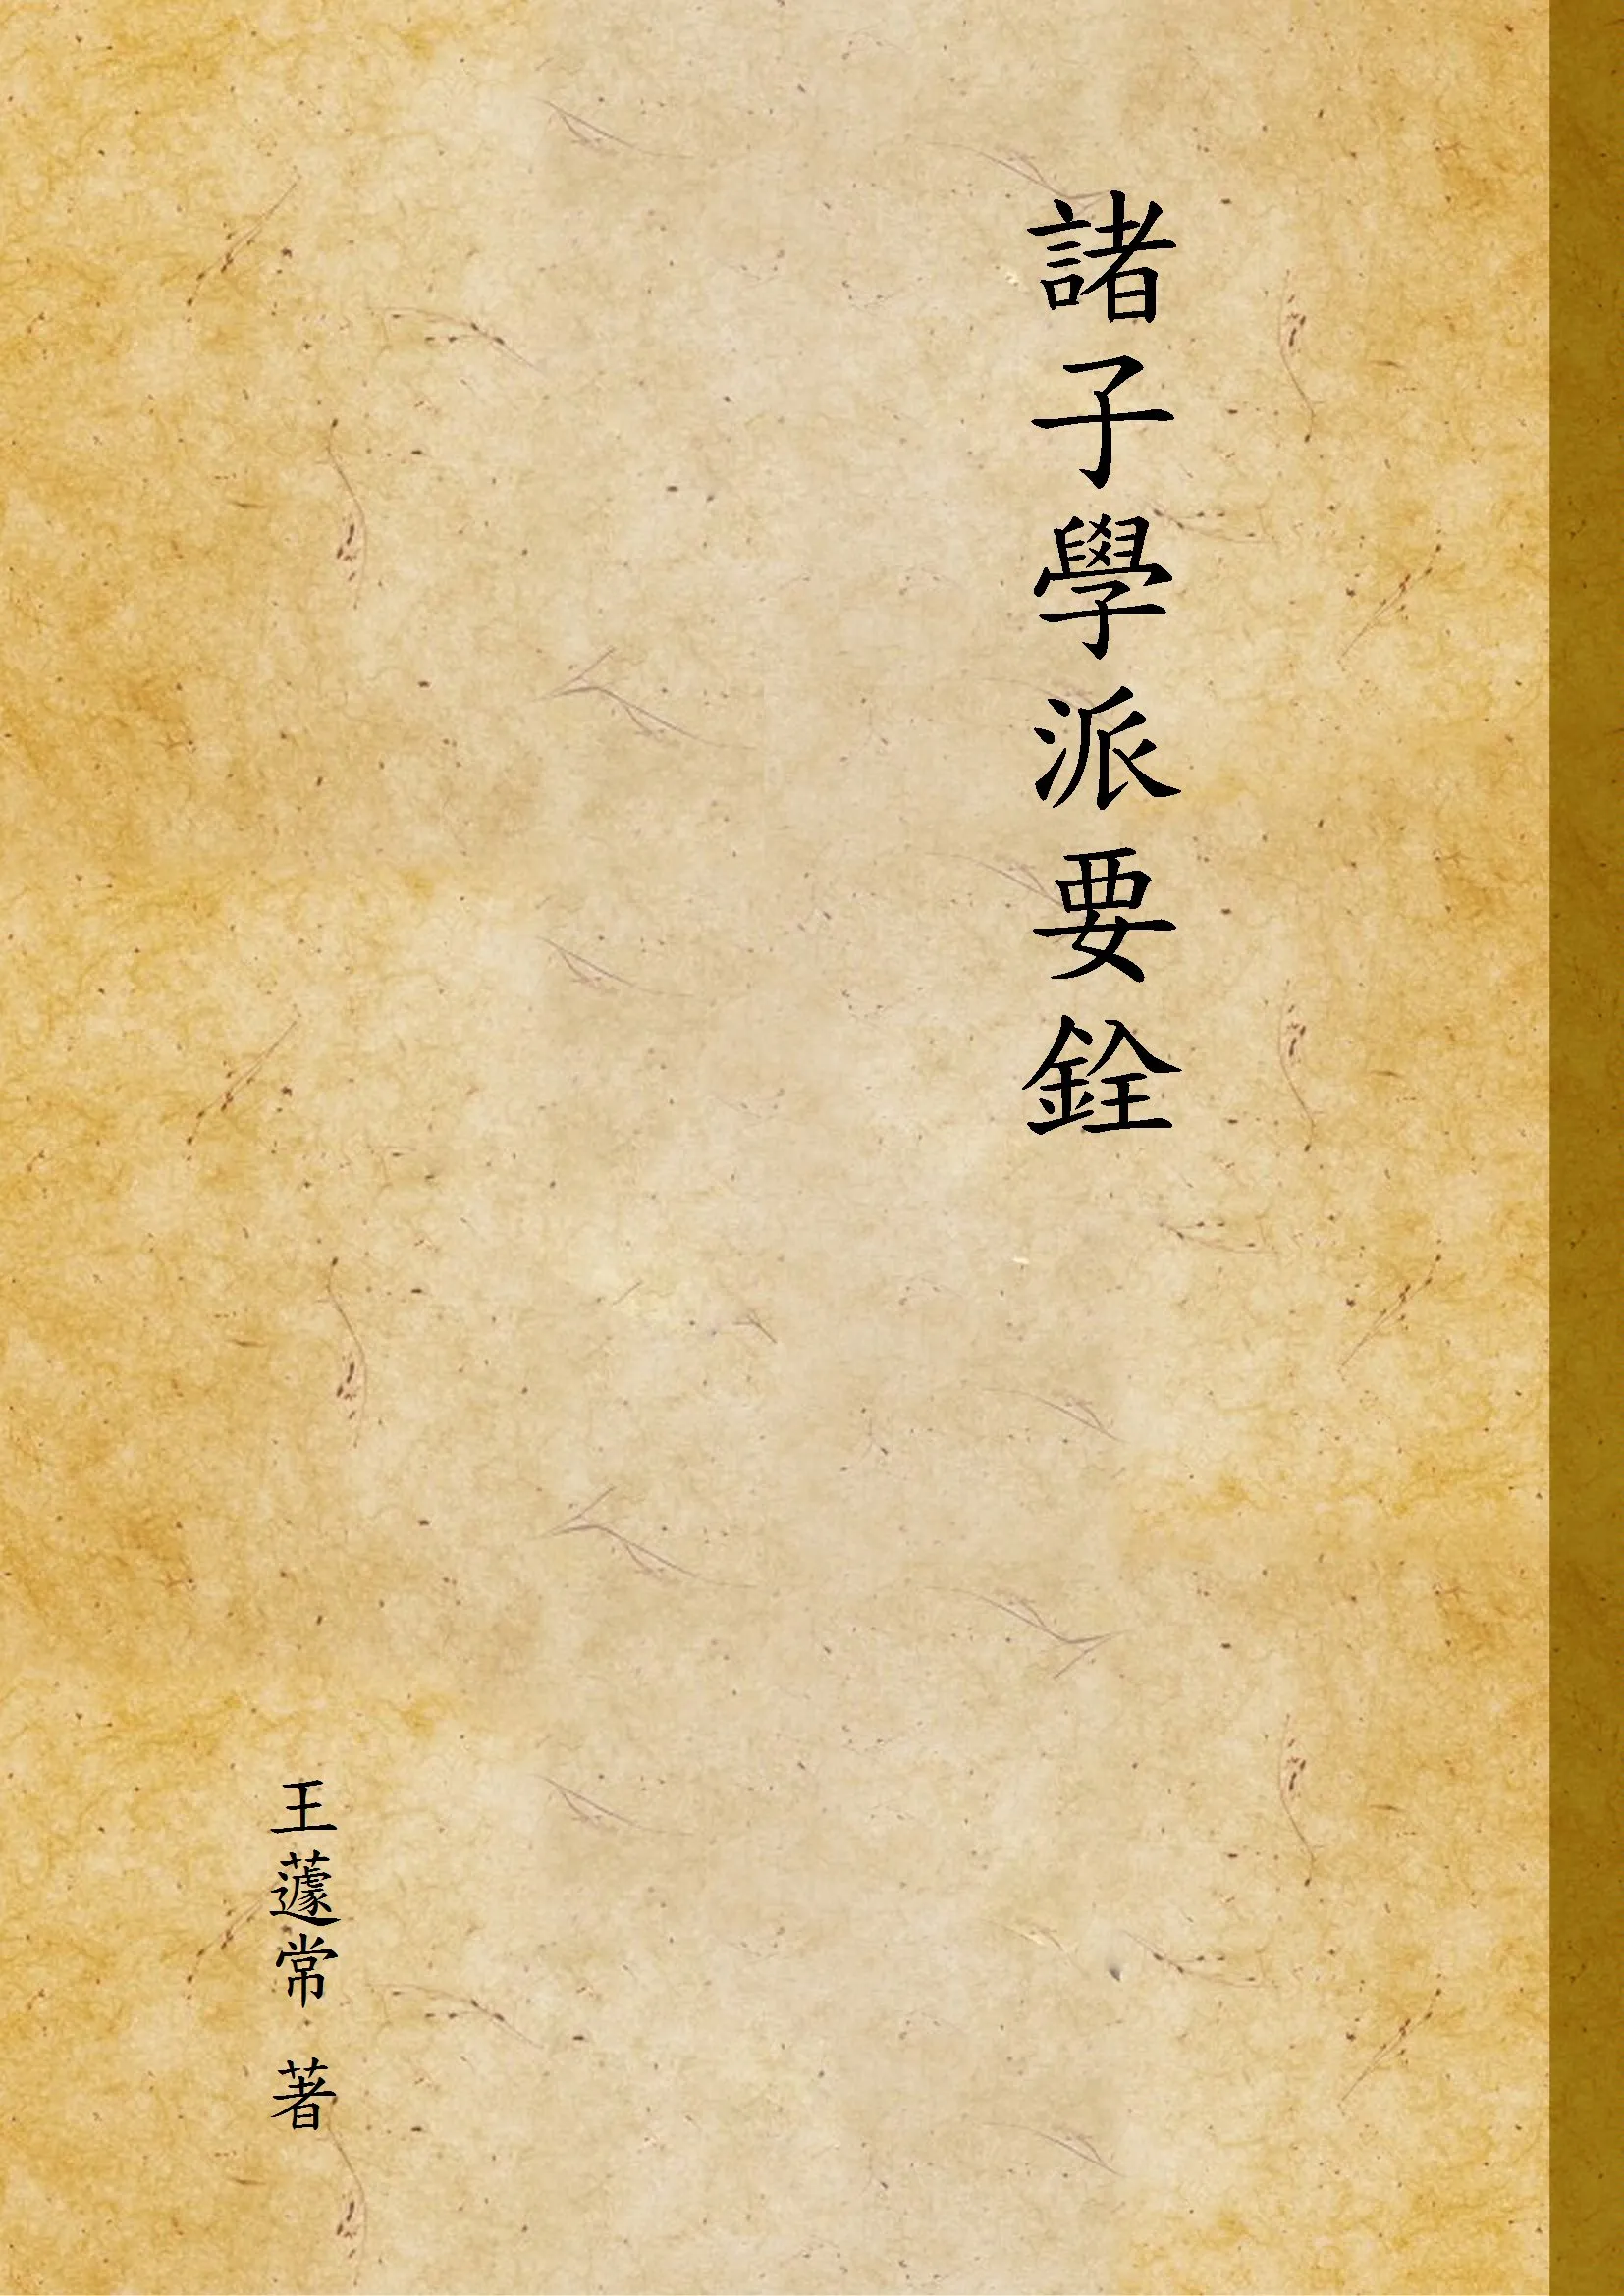 諸子學派要銓
王蘧常 著